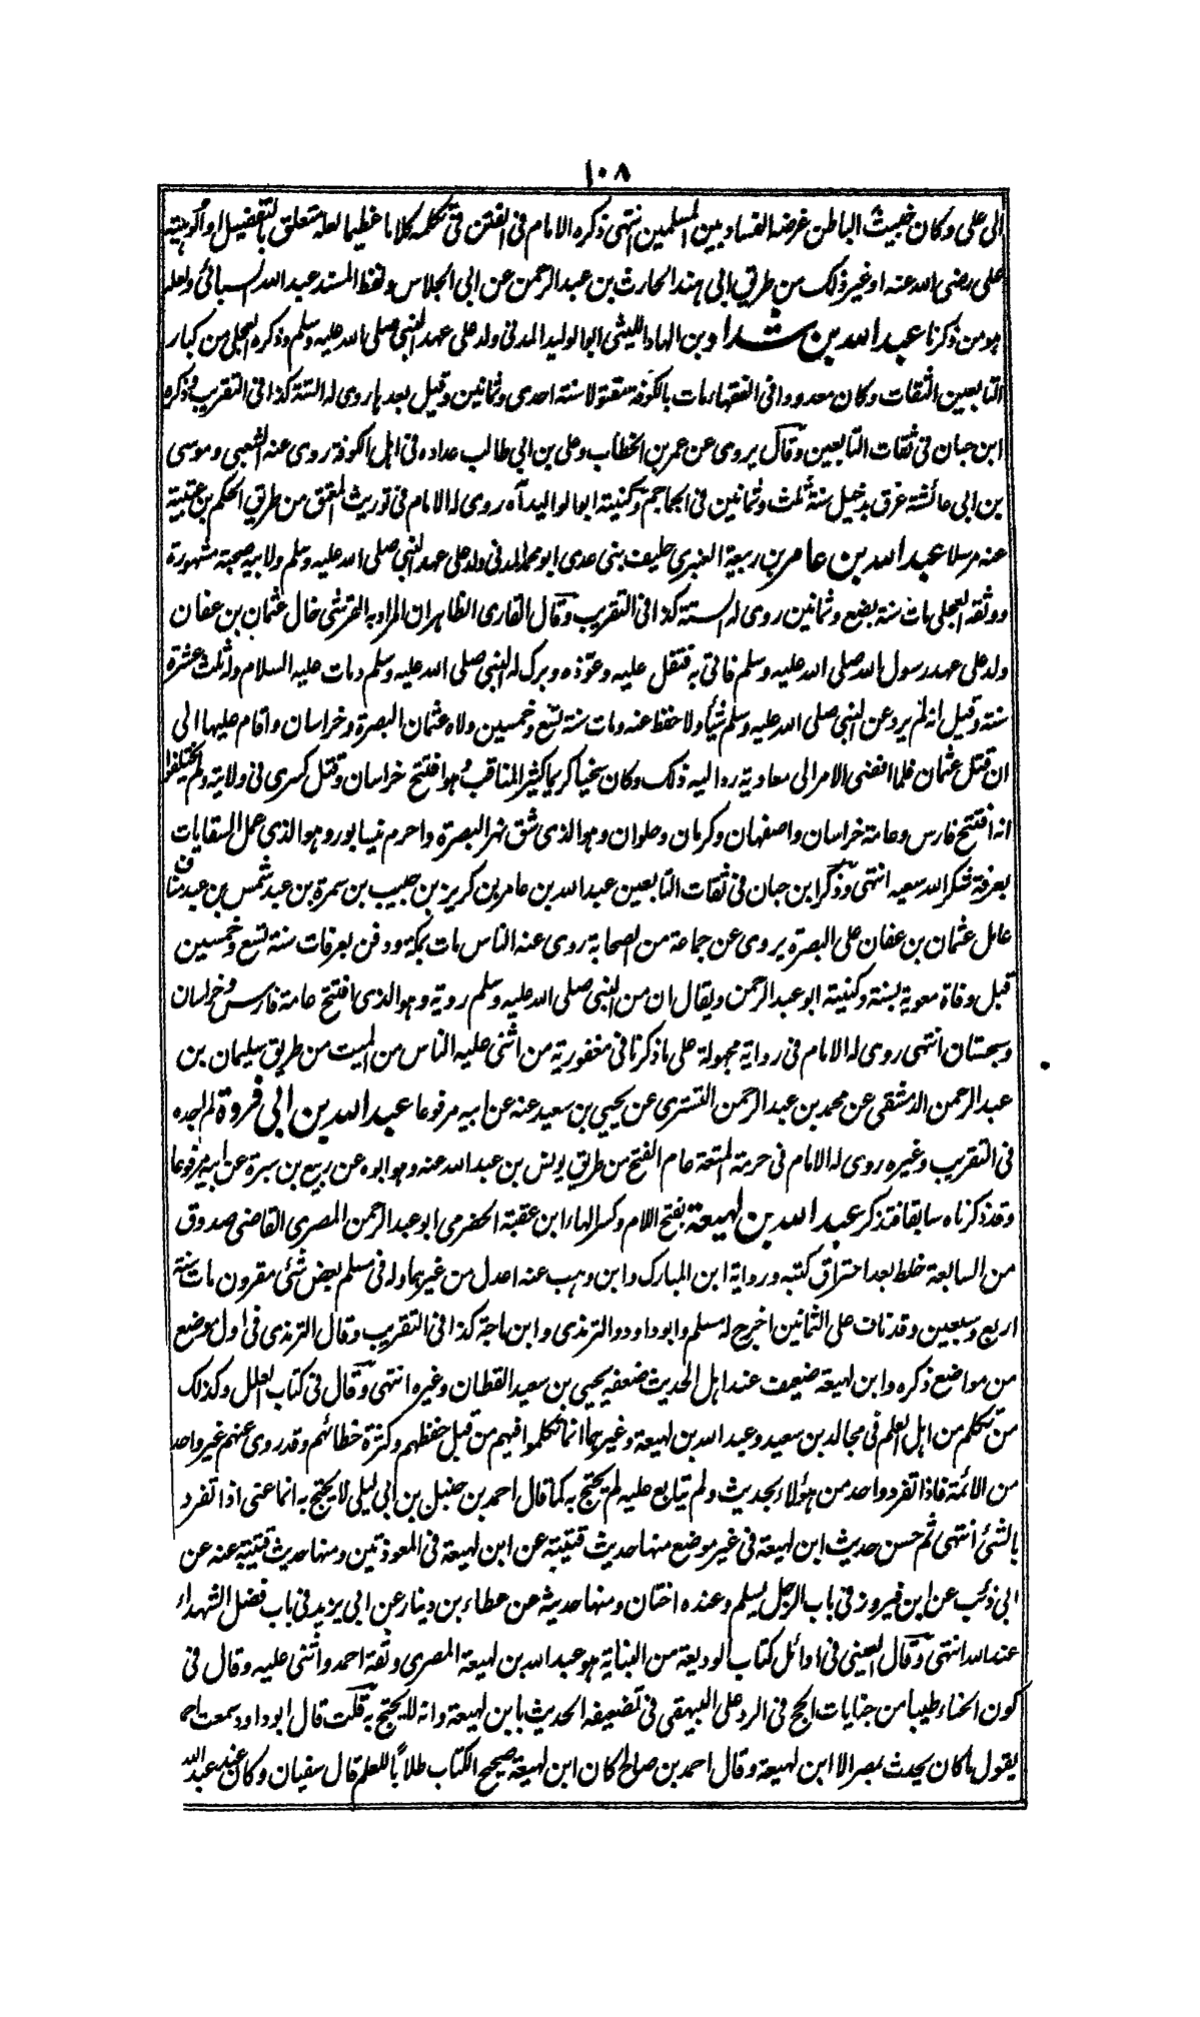 ١٠٨
الى على وكان خبيث الباطن غرضه الفساد بين المسلمين انتهى ذكره الامام فى الفتن فى تكلمه كلاما عظيما لعله متعلق بالتفضيل او ألوهيته
على رضى الله عنه او غير ذلك من طريق ابى هند الحارث بن عبد الرحمن عن ابى الجلاس ولفظ المسند عبد الله السبائى ولعله
هو من ذكرنا عبد الله بن شداد بن الهاد الليثى ابو الوليد المدنى ولد على عهد النبى صلى الله عليه وسلم وذكره العجلى من كبار
التابعين الثقات وكان معدودا فى الفقهاء مات بالكوفة مقتولا سنة احدى وثمانين وقيل بعدها روى له الستة كذا فى التقريب وذكره
ابن حبان فى ثقات التابعين وقال يروى عن عمر بن الخطاب وعلى بن ابى طالب عداده فى اهل الكوفة روى عنه الشعبى وموسى
بن ابى عائشة غرق بدجيل سنة ثلث وثمانين فى الجماجم وكنيته ابوالوليد آه روى له الامام فى توريث المعتق من طريق الحكم بن عتيبة
عنه مرسلا عبد الله بن عامر بن ربيعة العنبرى حليف بنى عدى ابو محمد المدنى ولد على عهد النبى صلى الله عليه وسلم ولابيه صحبة مشهورة
ووثقه العجلى مات سنة بضع وثمانين روى له الستة كذا فى التقريب وقال القارى الظاهر ان المراد به القرشى خال عثمان بن عفان
ولد على عهد رسول الله صلى الله عليه وسلم فاتى به فتفل عليه وعوّذه وبرك له النبى صلى الله عليه وسلم ومات عليه السلام وله ثلث عشرة
سنة وقيل انه لم يرو عن النبى صلى الله عليه وسلم شيأ ولا حفظ عنه ومات سنة تسع وخمسين ولاه عثمان البصرة وخراسان واقام عليها الى
ان قتل عثمان فلما افضى الامر الى معاوية رد اليه ذلك وكان سخيا كريما كثير المناقب وهو افتتح خراسان وقتل كسرى فى ولايته ولم يختلفوا
انه افتتح فارس وعامة خراسان واصفهان وكرمان وحلوان وهو الذى شق نهر البصرة واحرم من نيسابور وهو الذى عمل السقايات
بعرفة شكر الله سعيه انتهى وذكر ابن حبان فى ثقات التابعين عبد الله بن عامر بن كريز بن حبيب بن سمرة بن عبد شمس بن عبد مناف
عامل عثمان بن عفان على البصرة يروى عن جماعة من الصحابة روى عنه الناس مات بمكة ودفن بعرفات سنة تسع وخمسين
قبل وفاة معوية بسنة وكنيته ابو عبد الرحمن ويقال ان من النبى صلى الله عليه وسلم روية وهو الذى افتتح عامة فارس وخراسان
وسجستان انتهى روى له الامام فى رواية مجهولة على ما ذكرنا فى مغفورية من اثنى عليه الناس من الميت من طريق سليمان بن
عبد الرحمن الدمشقى عن محمد بن عبد الرحمن التسترى عن يحيى بن سعيد عنه عن ابيه مرفوعا عبد الله بن ابى فروة لم اجده
فى التقريب وغيره روى له الامام فى حرمة المتعة عام الفتح من طريق يونس بن عبد الله عنه وهو ابوه عن ربيع بن سبرة عن ابيه مرفوعا
وقد ذكرناه سابقا فتذكر عبد الله بن لهيعة بفتح اللام وكسر الهاء ابن عقبة الحضرمى ابو عبد الرحمن المصرى القاضى صدوق
من السابعة خلط بعد احتراق كتبه ورواية ابن المبارك وابن وهب عنه اعدل من غيرهما وله فى مسلم بعض شئ مقرون مات سنة
اربع وسبعين وقد ناف على الثمانين اخرج له مسلم وابو داود والترمذى وابن ماجة كذا فى التقريب وقال الترمذى فى اول موضع
من مواضع ذكره وابن لهيعة ضعيف عند اهل الحديث ضعفه يحيى بن سعيد القطان وغيره انتهى وقال فى كتاب العلل وكذلك
من تكلم من اهل العلم فى مجالد بن سعيد وعبد الله بن لهيعة وغيرهما انما تكلموا فيهم من قبل حفظهم وكثرة خطائهم وقد روى عنهم غير واحد
من الائمة فاذا تفرد واحد من هؤلاء بحديث ولم يتابع عليه لم يحتج به كما قال احمد بن حنبل بن ابى ليلى لا يحتج به انما عنى اذا تفرد
بالشئ انتهى ثم حسن حديث ابن لهيعة فى غير موضع منها حديث قتيبة عن ابن لهيعة فى المعوذتين ومنها حديث قتيبة عنه عن
ابى ذئب عن ابن فيروز فى باب الرجل يسلم وعنده اختان ومنها حديثه عن عطاء بن دينار عن ابى يزيد فى باب فضل الشهداء
عند الله انتهى وقال العينى فى اوائل كتاب الوديعة من البناية هو عبد الله بن لهيعة المصرى وثقه احمد واثنى عليه وقال فى
كون الحناء طيبا من جنايات الحج فى الرد على البيهقى فى تضعيفه الحديث بابن لهيعة وانه لا يحتج به قلت قال ابو داود سمعت احمد
يقول ما كان يحدث بمصر الا ابن لهيعة وقال احمد بن صالح كان ابن لهيعة صحيح الكتاب طلابًا للعلم قال سفيان وكان عند عبد الله